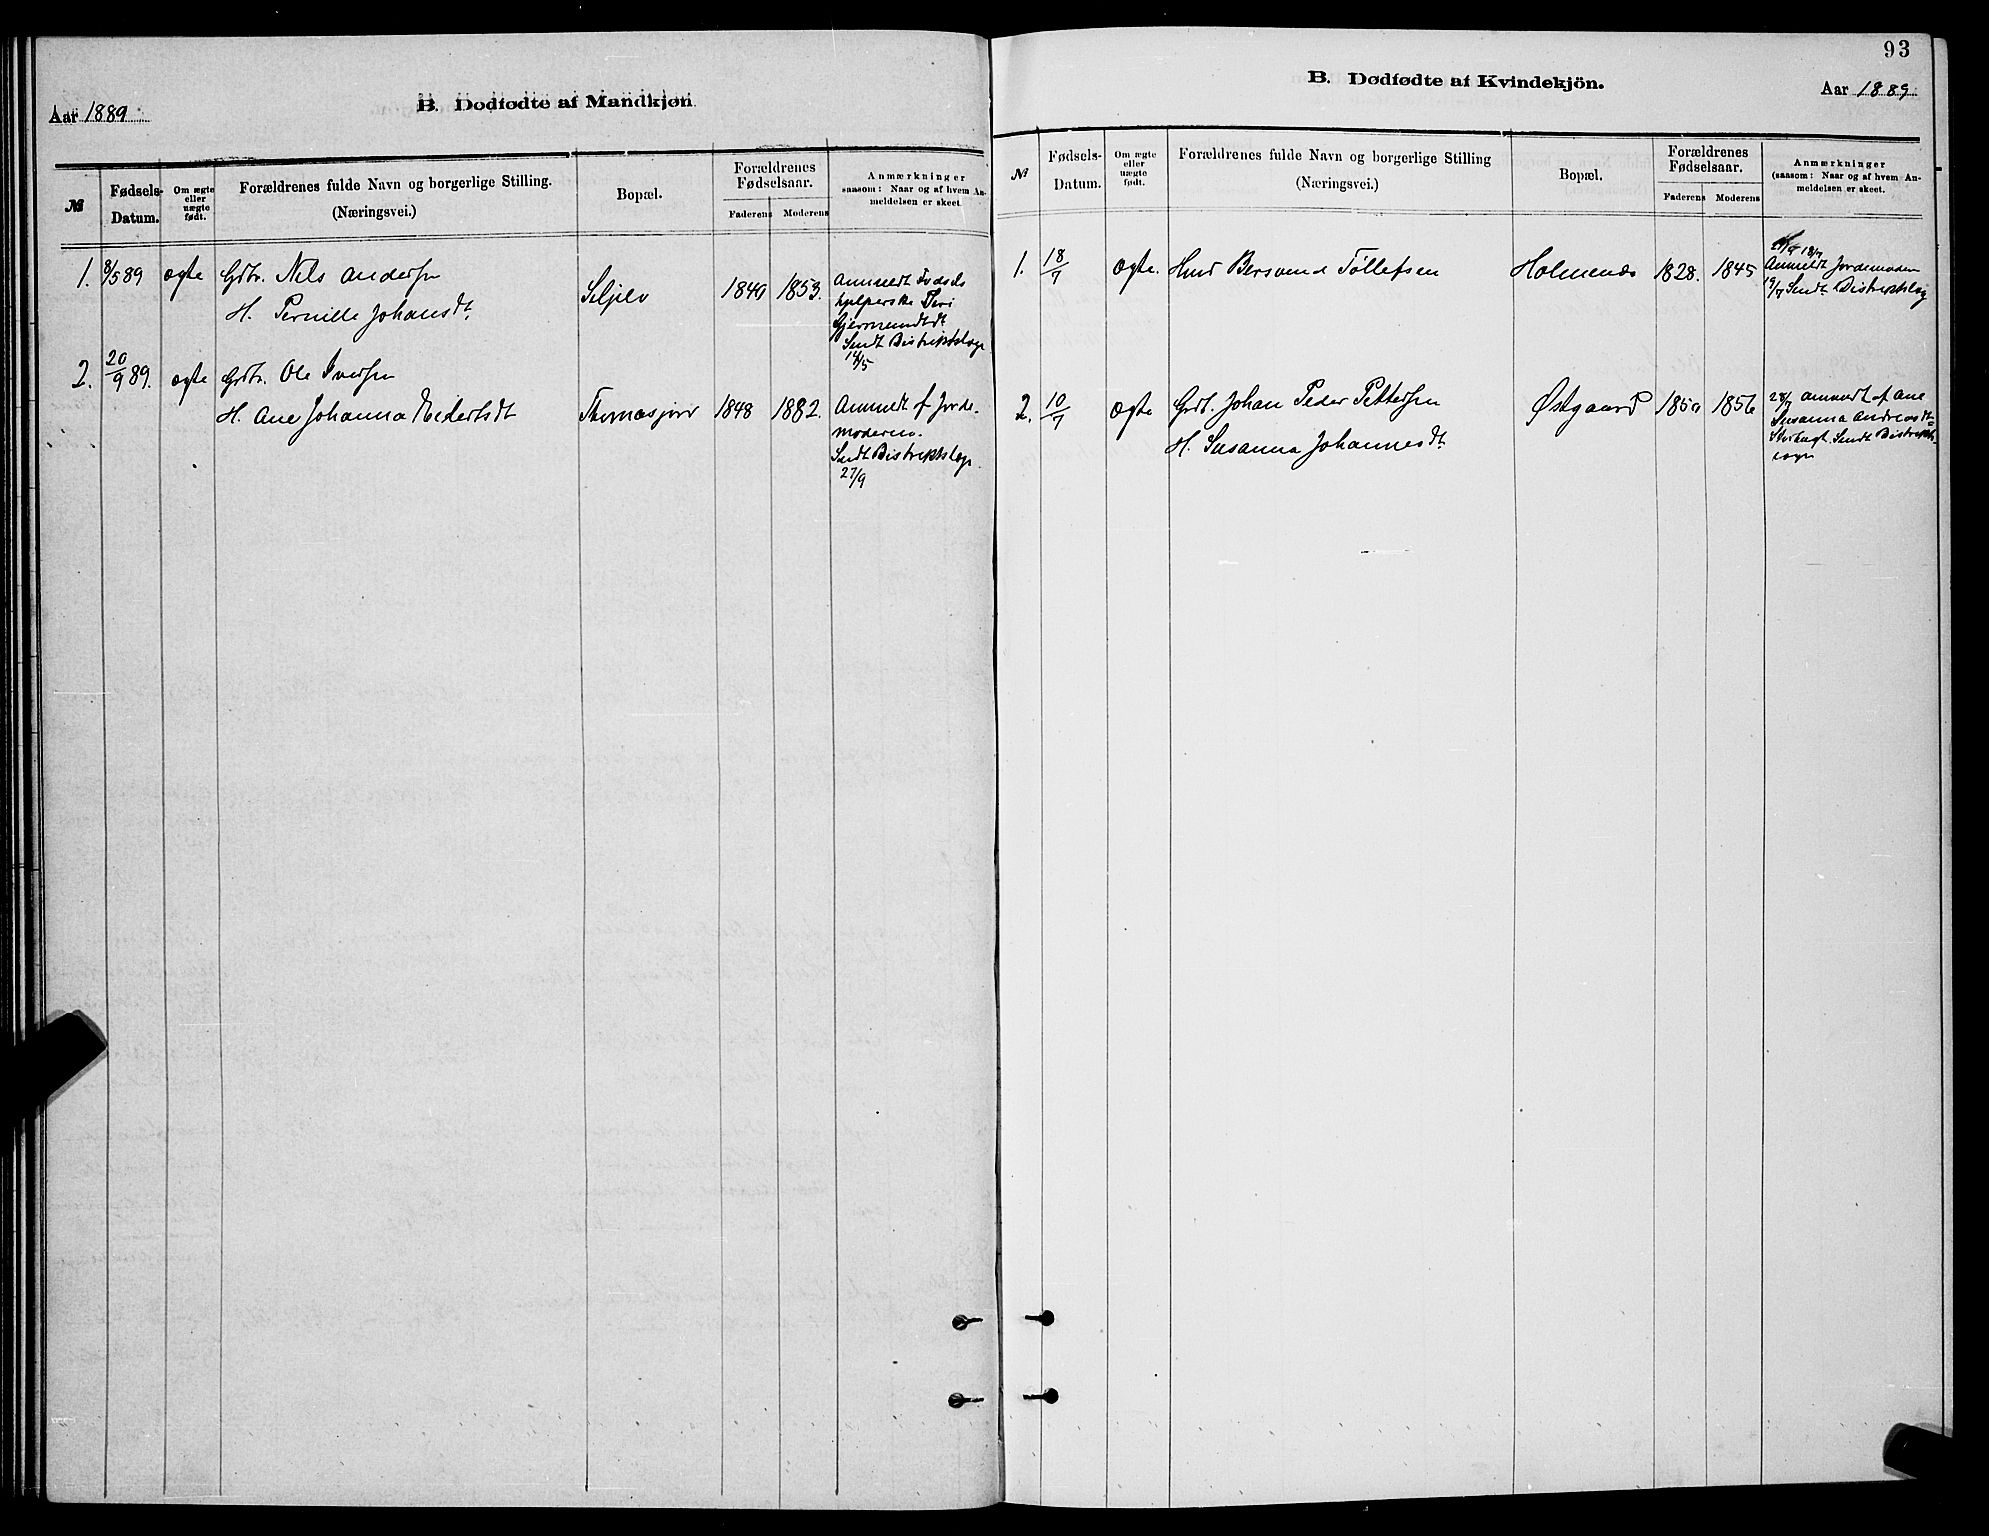 Aar 1889
B. Dødfødte af Mandkjøn
№
Fødsels-
Datum.
Om ægte
eller
uægte
født.
Forældrenes fulde Navn og borgerlige Stilling.
(Næringsvei.)
Bopæl.
Forældrenes
Fødselsaar.
Faderens
Moderens
Anmærkninger
saasom: Naar og af hvem An-
meldelsen er skeet.
1.
8/5 89
ægte
Grdbr. Nils Andersen
H. Pernille Johansdt.
Seljelv
1849
1853.
Anmeldt Fødsels
hjelperske
Gjermundtdt
Sendt Distriktslæge
14/5
2.
20/9 89.
ægte
Grdbr. Ole Iversen
H. Ane Johanna Edertsdt
Thomasjord
1848
1882.
Anmeldt af Jorde-
moderen.
Sendt Distriktslæge.
27/9
93
B. Dødfødte af Kvindekjön.
Aar 1889
№
Fødsels-
Datum.
Om ægte
eller
uægte
født.
Forældrenes fulde Navn og borgerlige Stilling
(Næringsvei.)
Bopæl.
Forældrenes
Fødselsaar.
Faderens
Moderens
Anmærkninger
(saasom: Naar og af hvem An-
meldelsen er skeet.
1.
18/7
ægte.
Bersvend Tøllefsen
Holmenæs
1828.
1845
18/7
Anmeldt Jordemoder
19/7 Sendt Distriktslæg
2.
10/7
ægte
Grdb. Johan Peder Pettersen
H. Susanna Johannesdt
Østgaard
1850
1856
28/7 anmeldt af Ane
Susanna Andreasdt
Sendt Distrikts-
læge